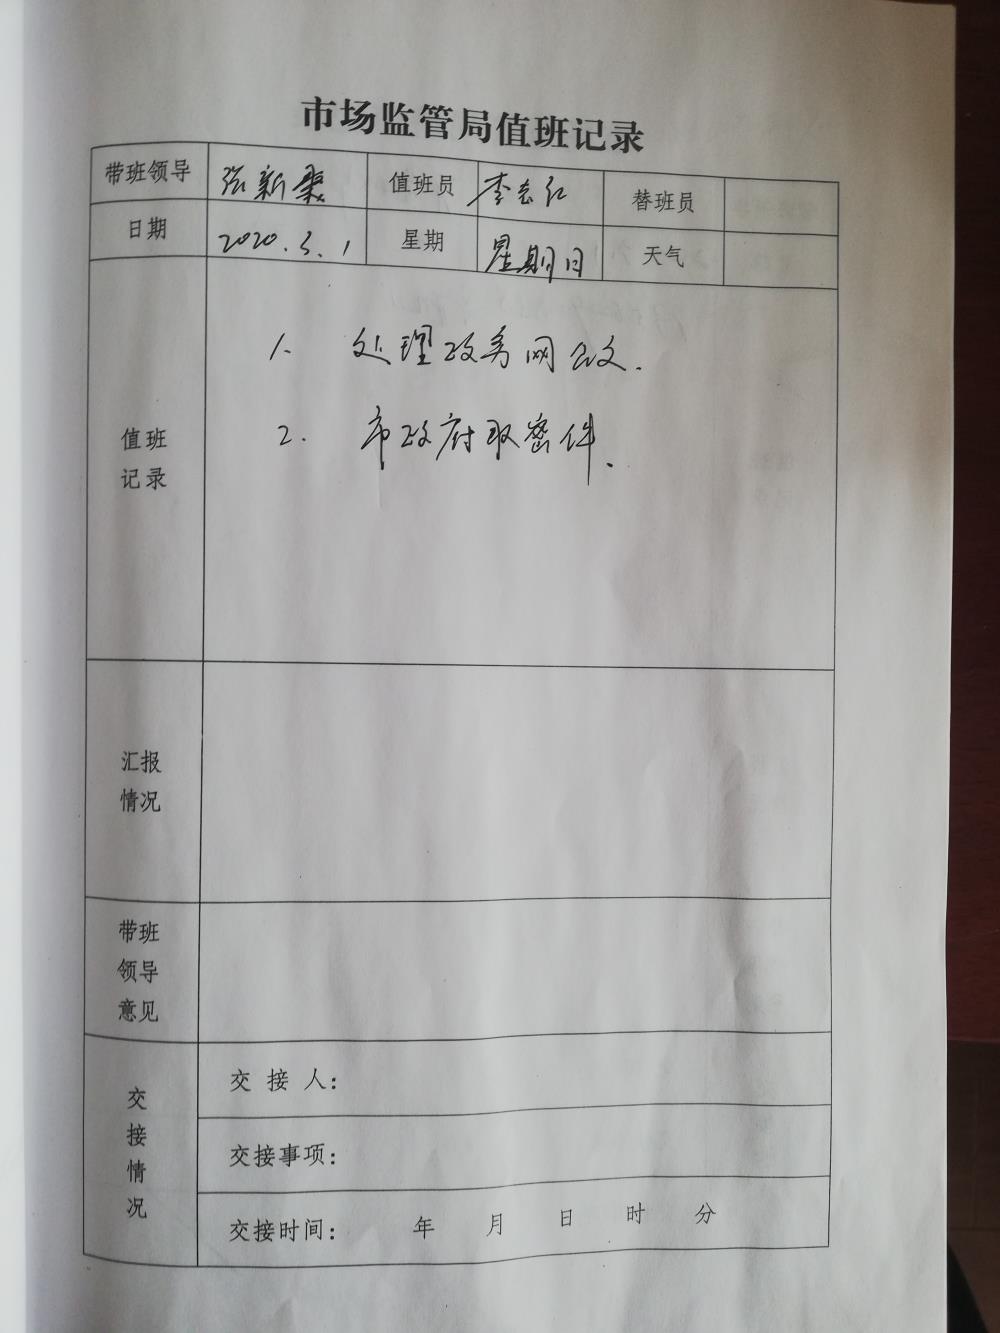 市场监管局值班记录
带班领导 张新 值班员 李志红 替班员
日期 2020.3.1 星期 星期日 天气
值班记录
1. 处理政务网公文.
2. 市政府取密件.
汇报情况
带班领导意见
交接情况
交接人:
交接事项:
交接时间: 年 月 日 时 分